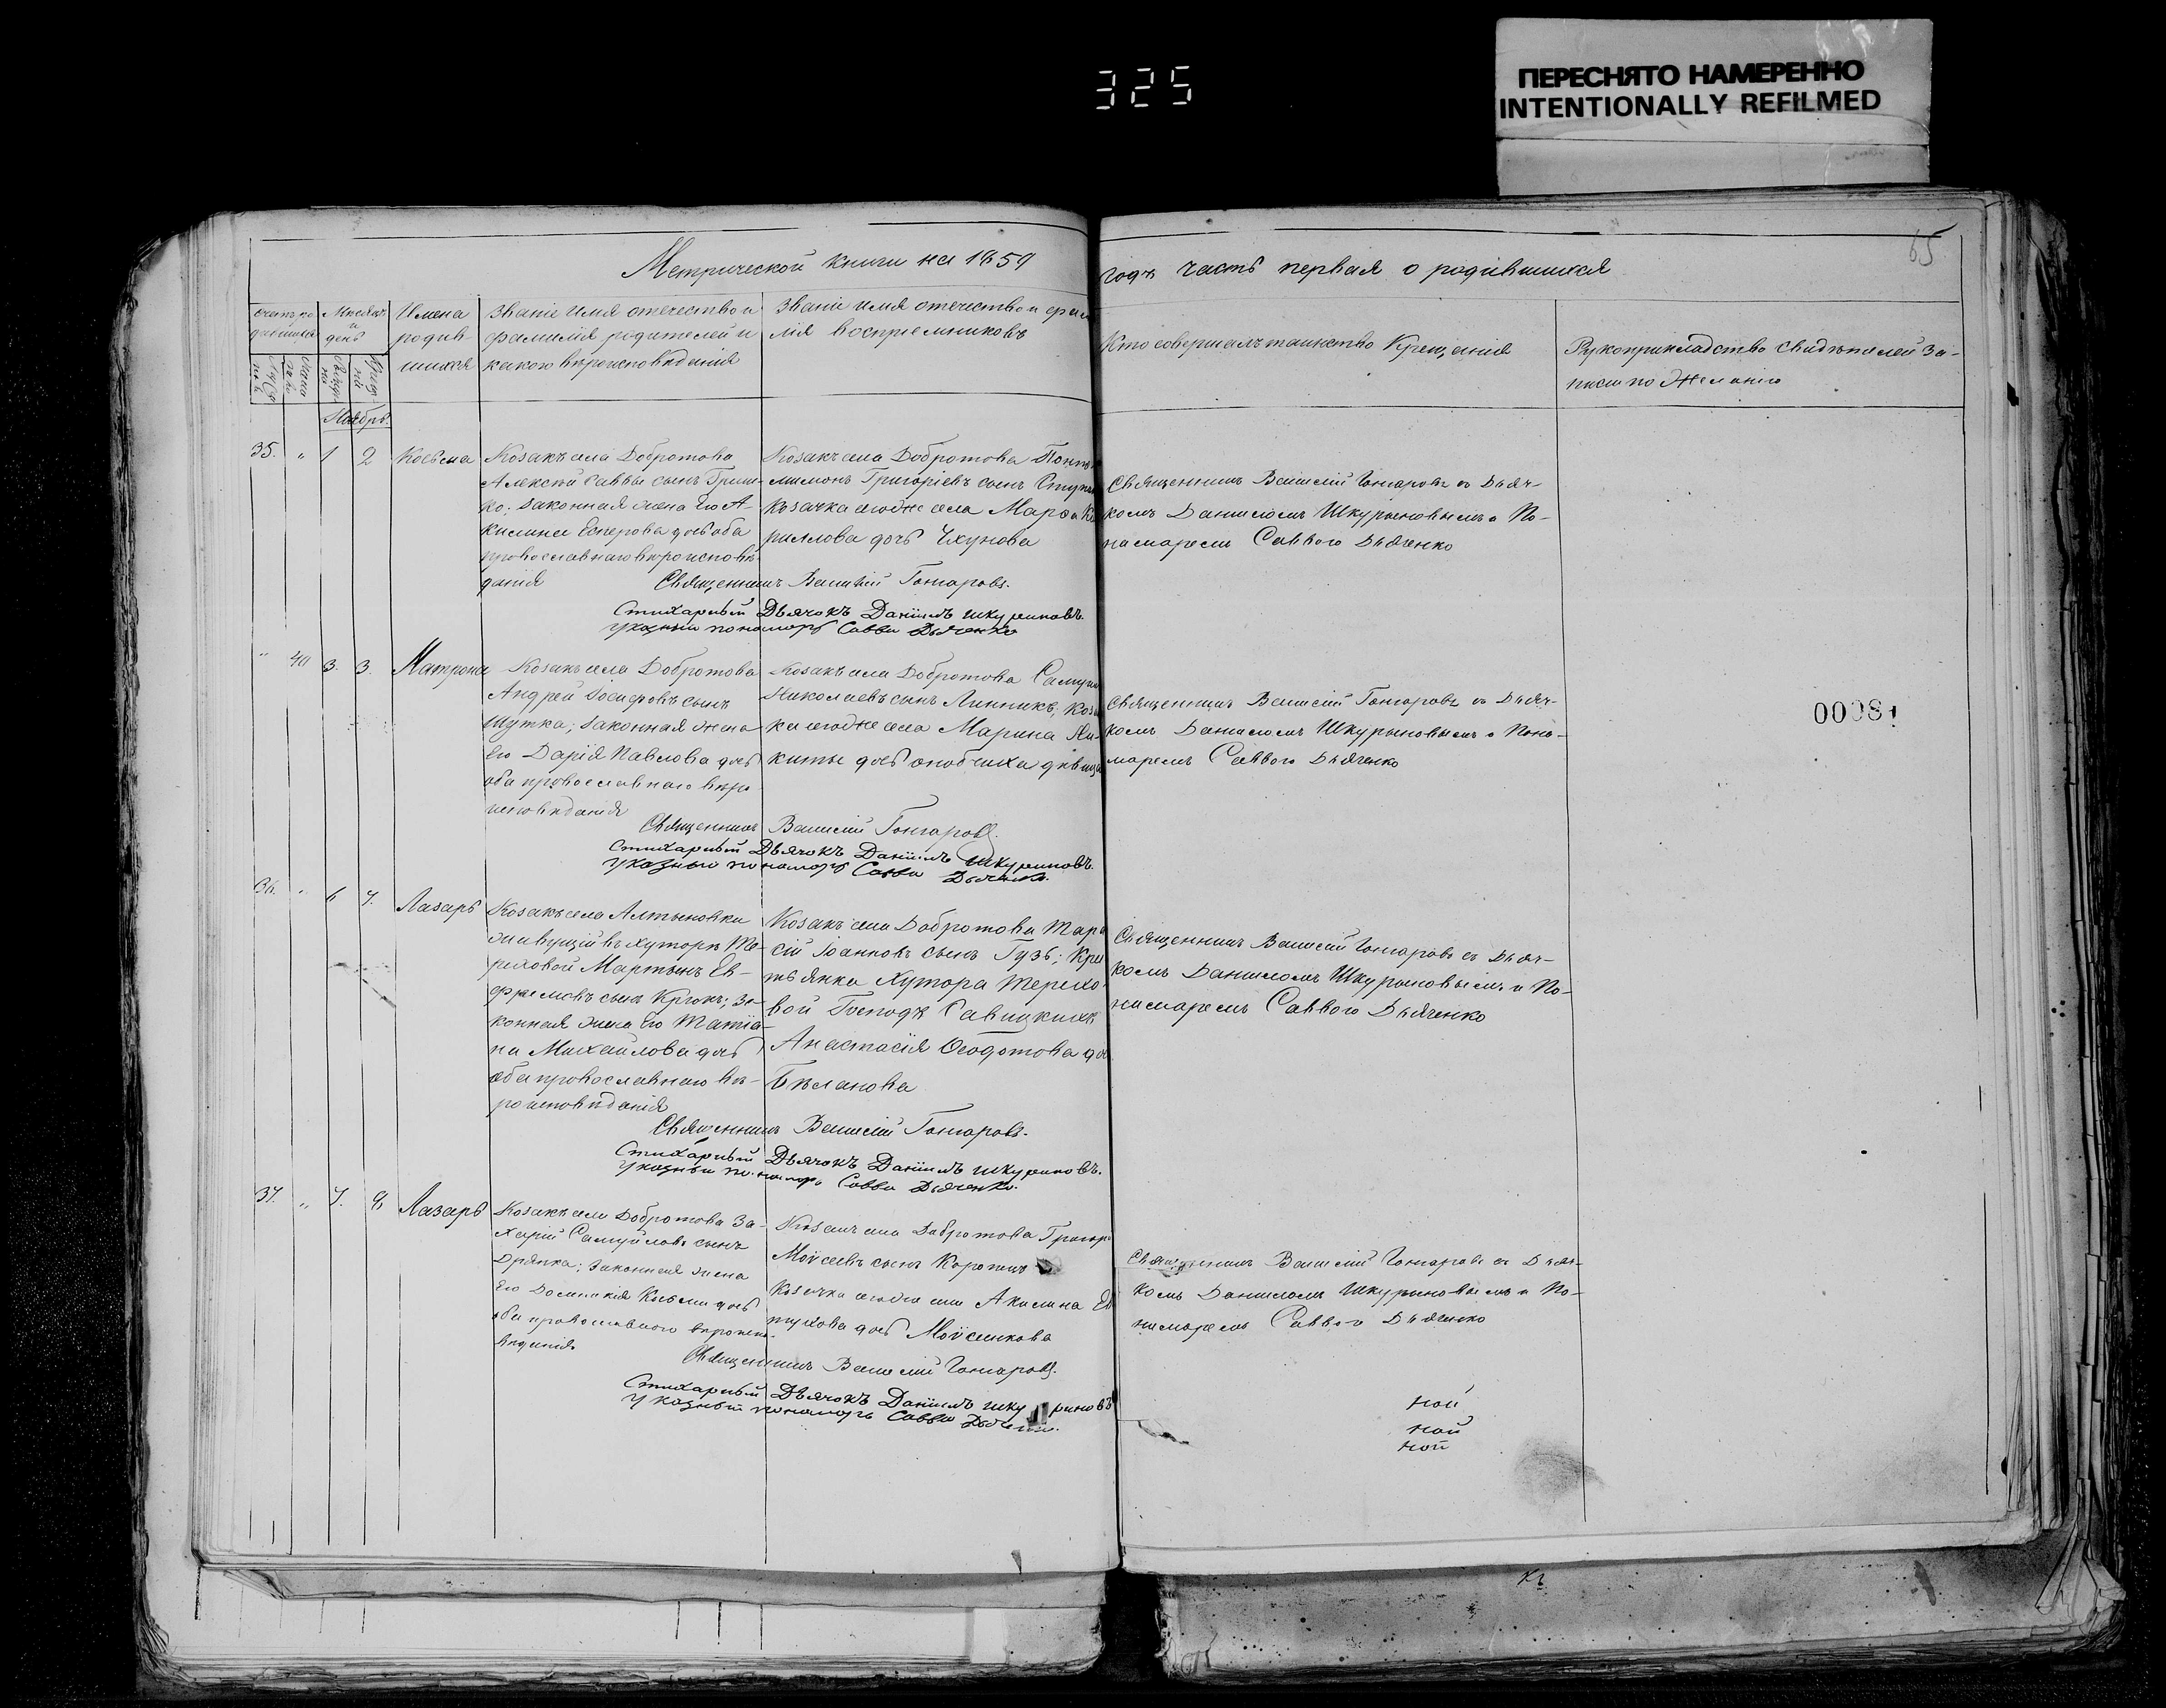 325
ПЕРЕСНЯТО НАМЕРЕННО
INTENTIONALLY REFILMED
65
Метрической книги на 1859
годъ часть первая о родившихся
Имена родив-шихся
Званіе имя отечество и
фамилія родителей и
какого вѣроисповѣданія
Званіе имя отечество и фами
лія воспріемниковъ
Кто совершалъ таинство Крещенія
Рукоприкладство свидѣтелей за-
писи по желанію
Ноябрь.
35. " 1 2 Косьма
Козакъ села Добротова
Алексѣй Саввы сынъ Гриш-
ко; законная жена его А-
килина дочь оба
православнаго вѣроисповѣ-
данія
Козакъ села Добротова
Григоріевъ сынъ
Козачка тогоже села Марѳа Ки
риллова дочь
Священникъ Василій Гончаровъ съ Дьяч-
комъ Даниломъ Шкурыновымъ и По-
намаремъ Саввою Дьяченко
Священникъ Василій Гончаровъ.
Стихарный Дьячокъ Даніилъ Шкуриновъ.
Указный пономарь Савва Дьяченко
" 40 3. 3. Матрона
Козакъ села Добротова
Андрей Іосифовъ сынъ
Шутка; законная жена
его Дарія Павлова дочь
оба православнаго вѣро
исповѣданія
Козакъ села Добротова
Николаевъ сынъ Линникъ; Коза
ка тогоже села Марина Ни-
киты дочь дѣвица
Священникъ Василій Гончаровъ съ Дьяч-
комъ Даниломъ Шкурыновымъ и Поно-
маремъ Саввою Дьяченко
00081
Священникъ Василій Гончаровъ.
Стихарный Дьячокъ Даніилъ Шкуриновъ.
Указный пономарь Савва Дьяченко.
36. " 6 7. Лазарь
Козакъ села Алтыновки
живущій въ хуторѣ Те-
реховой Мартынъ Ев-
фремовъ сынъ Крюкъ; за-
конная жена его Татіа-
на Михайлова дочь
оба православнаго вѣ-
роисповѣданія
Козакъ села Добротова Тара
сій Іоанновъ сынъ Гузь; Кре
тьянка Хутора Терехо
вой Господъ Савицкихъ
Анастасія Ѳеодотова до
Бѣланова
Священникъ Василій Гончаровъ съ Дьяч-
комъ Даниломъ Шкурыновымъ и По-
намаремъ Саввою Дьяченко
Священникъ Василій Гончаровъ.
Стихарный Дьячокъ Даніилъ Шкуриновъ.
Указный пономарь Савва Дьяченко.
37. " 7. 8 Лазарь
Козакъ села Добротова За-
харій Самуйловъ сынъ
Дрянка; законная жена
его Домникія Косьмы дочь
оба православнаго вѣроиспо-
вѣданія
Козакъ села Добротова Григор
Моѵсеевъ сынъ
Козачка тогоже села Акилина Ев
тухова дочь Моѵсеикова
Священникъ Василій Гончаровъ съ Дьяч-
комъ Даниломъ Шкурыновымъ и По-
намаремъ Саввою Дьяченко
Священникъ Василій Гончаровъ.
Стихарный Дьячокъ Даніилъ Шкуриновъ
Указный пономарь Савва
ной
ной
ной